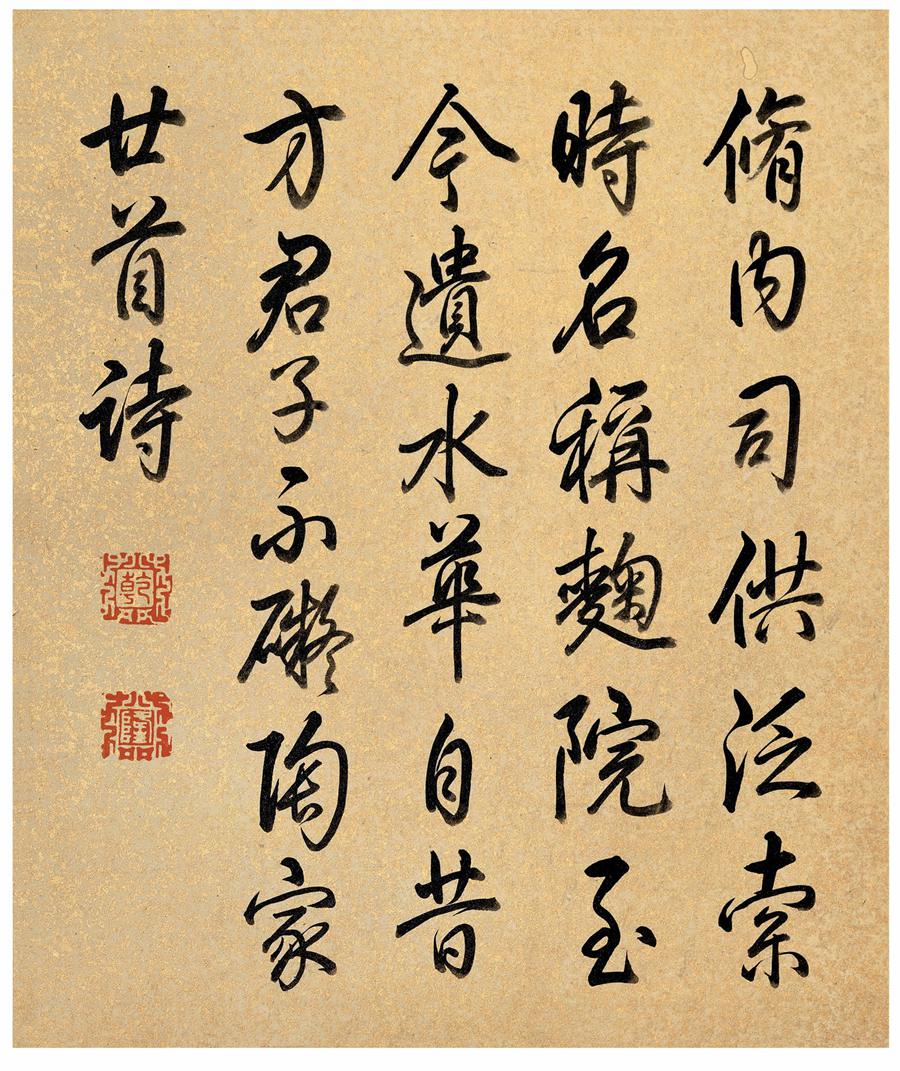 脩內司供泛索
時名稱麴院至
今遺水華自昔
方君子不礙陶家
廿首詩
乾
隆